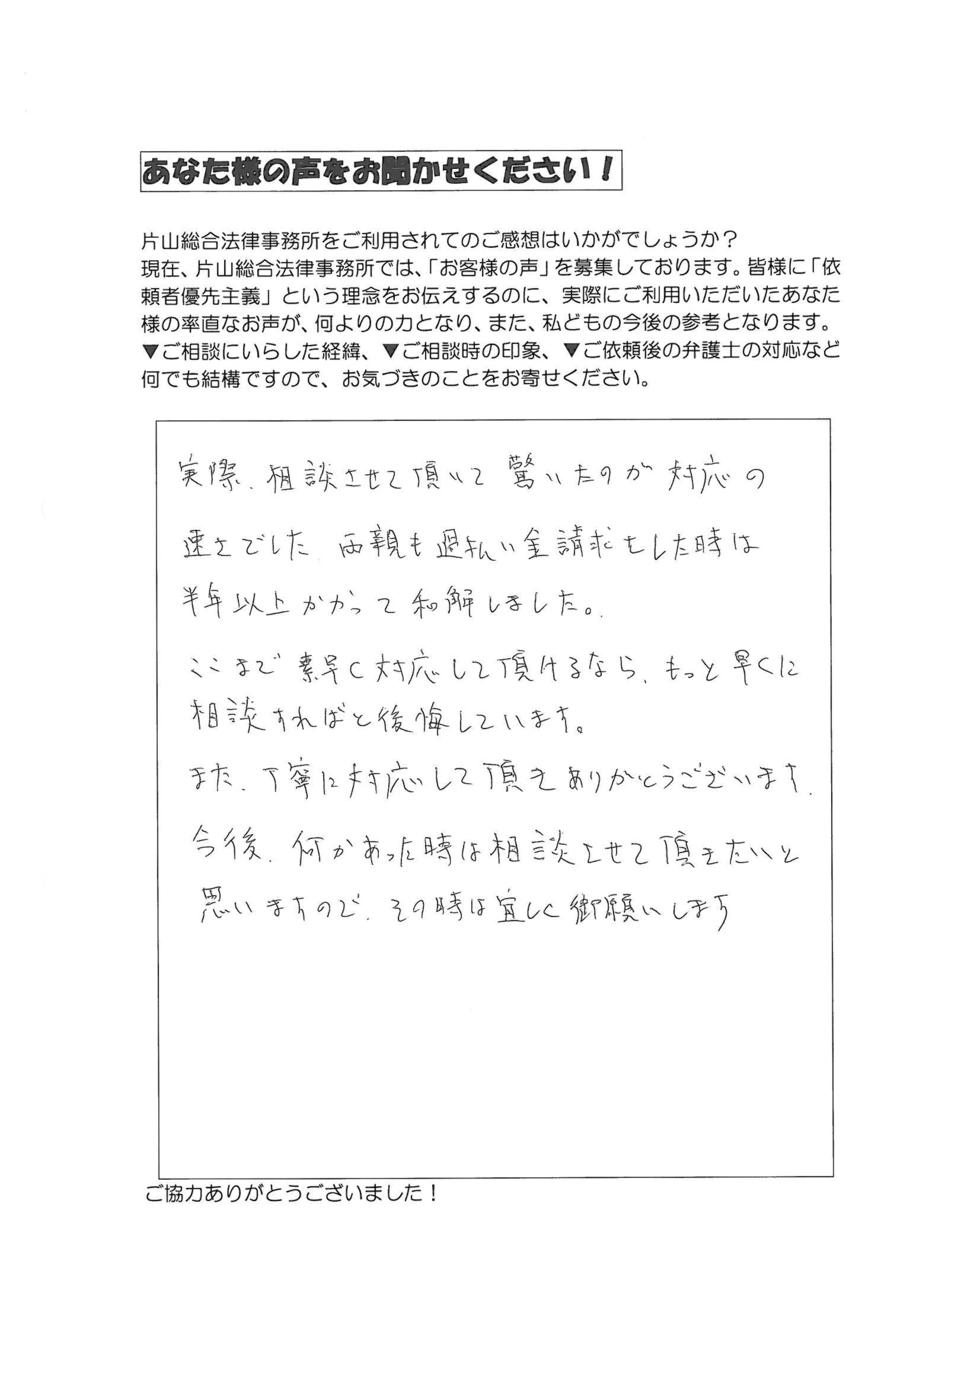 あなた様の声をお聞かせください！
片山総合法律事務所をご利用されてのご感想はいかがでしょうか？
現在、片山総合法律事務所では、「お客様の声」を募集しております。皆様に「依
頼者優先主義」という理念をお伝えするのに、実際にご利用いただいたあなた
様の率直なお声が、何よりの力となり、また、私どもの今後の参考となります。
▼ご相談にいらした経緯、▼ご相談時の印象、▼ご依頼後の弁護士の対応など
何でも結構ですので、お気づきのことをお寄せください。
実際、相談させて頂いて驚いたのが対応の
速さでした、両親も過払い金請求をした時は
半年以上かかって和解しました。
ここまで素早く対応して頂けるなら、もっと早くに
相談すればと後悔しています。
また、丁寧に対応して頂きありがとうございます、
今後、何かあった時は相談させて頂きたいと
思いますので、その時は宜しく御願いします
ご協力ありがとうございました！